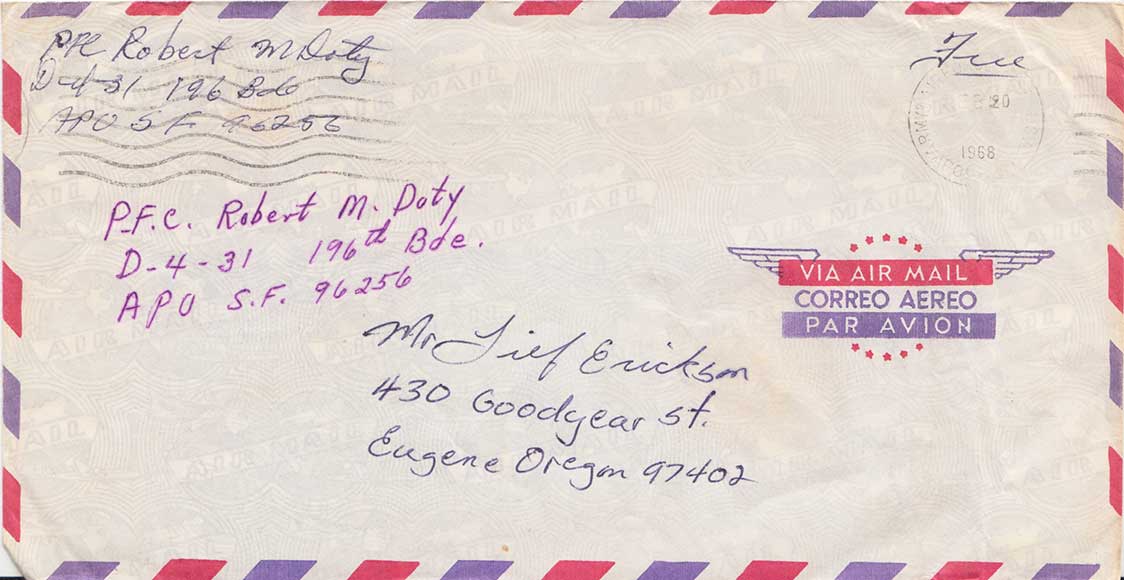 PFC Robert M Doty
D-4-31 196 Bde
APO S F 96256
Free
20
1968
P.F.C. Robert M. Doty
D-4-31 196th Bde.
APO S.F. 96256
VIA AIR MAIL
CORREO AEREO
PAR AVION
Mr Lief Erickson
430 Goodyear St.
Eugene Oregon 97402